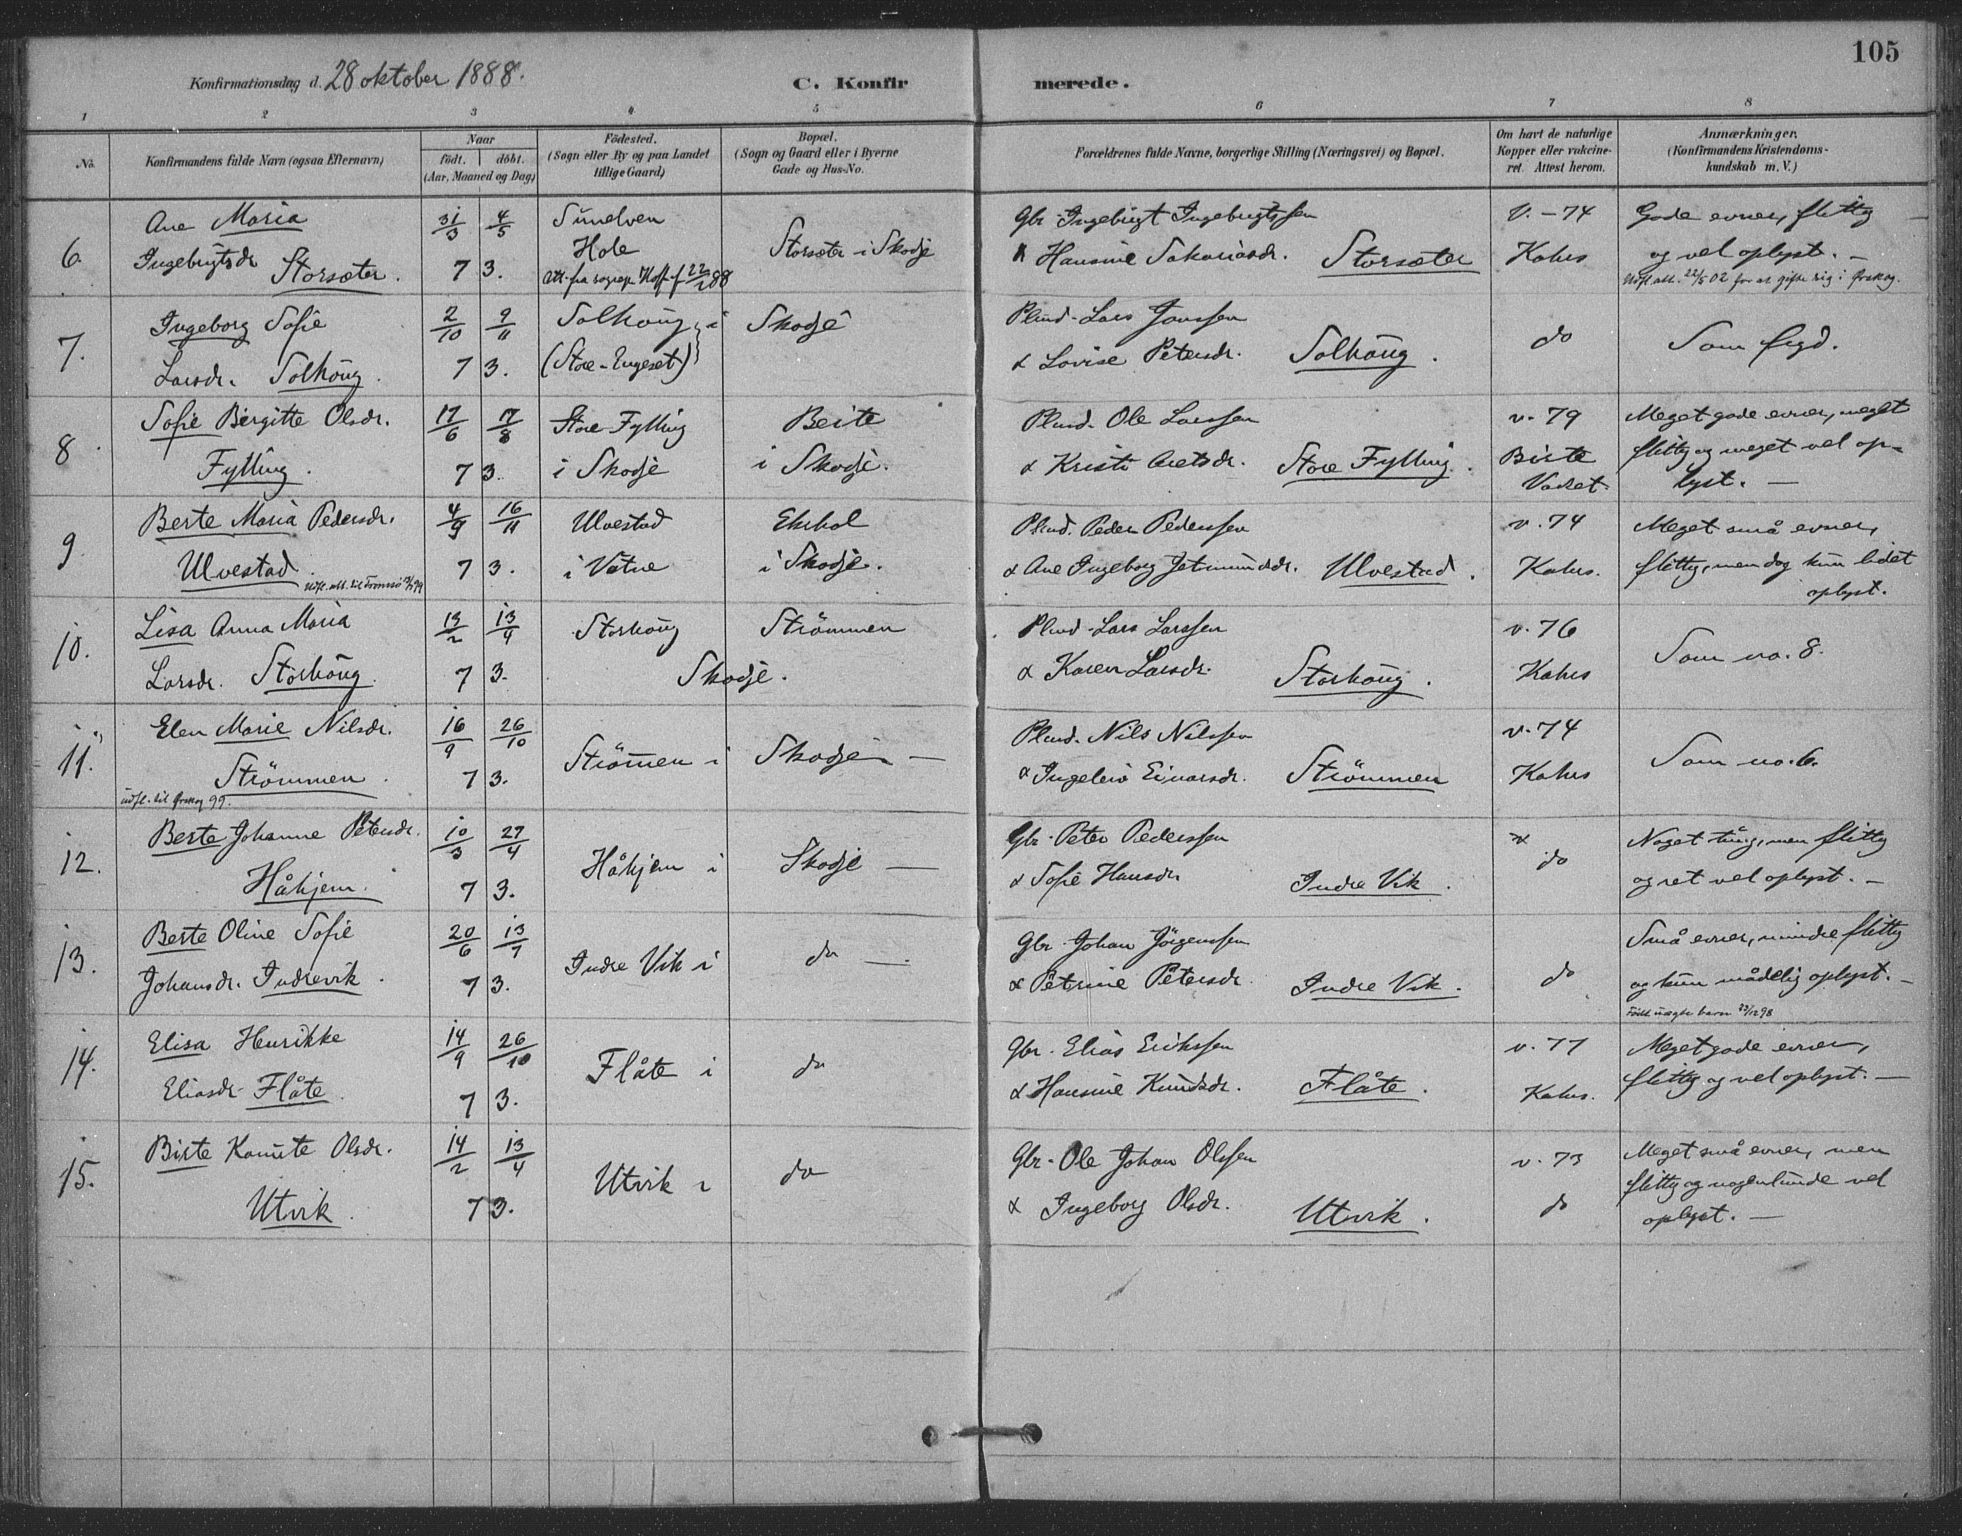 105
Konfirmationsdag d. 28 oktober 1888.
C. Konfirmerede.
1 2 3 4 5 6 7 8
No.
Konfirmandens fulde Navn (ogsaa Efternavn)
Naar
födt. döbt.
(Aar, Maaned og Dag)
Födested.
(Sogn eller By og paa Landet
tillige Gaard)
Bopæl.
(Sogn og Gaard eller i Byerne
Gade og Hus-No.
Forældrenes fulde Navne, borgerlige Stilling (Næringsvei) og Bopæl.
Om havt de naturlige
Kopper eller vakcine-
ret. Attest herom.
Anmærkninger.
(Konfirmandens Kristendoms-
kundskab m. V.)
6. Ane Maria 31/3 4/5 Sunelven Gbr. Ingebrigt Ingebrigtssen V. - 74 Gode evner, flittig
Ingebrigtsdr Storsæter. 7 3. Hole Storsæter i Skodje Hansine Sakariasdr. Storsæter Kahrs og vel oplyst. -
att. fra sognep. Hoff 22/88 Udfl. att. 22/5 02 for at gifte sig i Ørskog.
7. Ingeborg Sofie 2/10 9/11 Solhoug i Skodje Plmd. Lars Janssen do Som fregd.
Larsdr. Solhoug. 7 3. (Store-Engeset) & Lovise Petersdr. Solhoug.
8. Sofie Bergitte Olsdr. 17/6 17/8 Store Fylling Beite Plmd. Ole Larssen v. 79 Meget gode evner, meget
Fylling. 7 3. i Skodje i Skodje. & Kristi Aretsdr. Store Fylling. Birte flittig og meget vel op-
Vadset lyst. -
9. Berte Maria Pedersdr. 4/9 16/11 Ulvestad Ekrhol Plmd. Peder Pederssen v. 74 Meget små evner,
Ulvestad. 7 3. i Vatne i Skodje. & Ane Ingeborg Jetmundsdr. Ulvestad. Kahrs. flittig, men dog kun lidet
Udfl. att. til Tromsö 99 oplyst.
10. Lisa Anna Maria 13/2 13/4 Storhoug Strömmen Plmd. Lars Larssen v. 76 Som no. 8.
Larsdr. Storhoug. 7 3. Skodje. & Karen Larsdr. Storhoug. Kahrs
11. Elen Marie Nilsdr. 16/9 26/10 Strömen i Skodje - Plmd. Nils Nilssen v. 74 Som no. 6.
Strömmen. 7 3. & Ingeleiv Einarsdr. Strömmen Kahrs
udfl. til Ørskog 99.
12. Berte Johanne Petersdr. 10/3 27/4 Håhjem i Skodje - Gbr. Peter Pederssen do Noget tung, men flittig
Håhjem. 7 3. & Sofie Hansdr Indre Vik. og ret vel oplyst. -
13. Berte Oline Sofie 20/6 13/7 Indre Vik i do -. Gbr. Johan Jörgenssen Små evner, mindre flittig
Johansdr. Indrevik. 7 3. & Petrine Petersdr. Indre Vik. do og kun mådelig oplyst. -
Födt uægte barn 23/12 98
14. Elisa Henrikke 14/9 26/10 Flåte i do Gbr. Elias Erikssen v. 77 Meget gode evner,
Eliasdr Flåte. 7 3. & Hansine Knudsdr. Flåte. Kahrs. flittig og vel oplyst. -
15. Birte Kanute Olsdr. 14/2 13/4 Utvik i do Gbr. Ole Johan Olssen v. 73 Meget små evner, men
Utvik. 7 3. & Ingeborg Olsdr. Utvik. do flittig og nogenlunde vel
oplyst. -